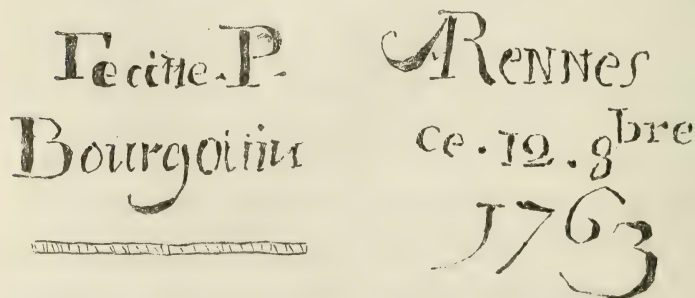 Fecitte. P.
Bourgoüin
A Rennes
ce. 12. 8bre
1763